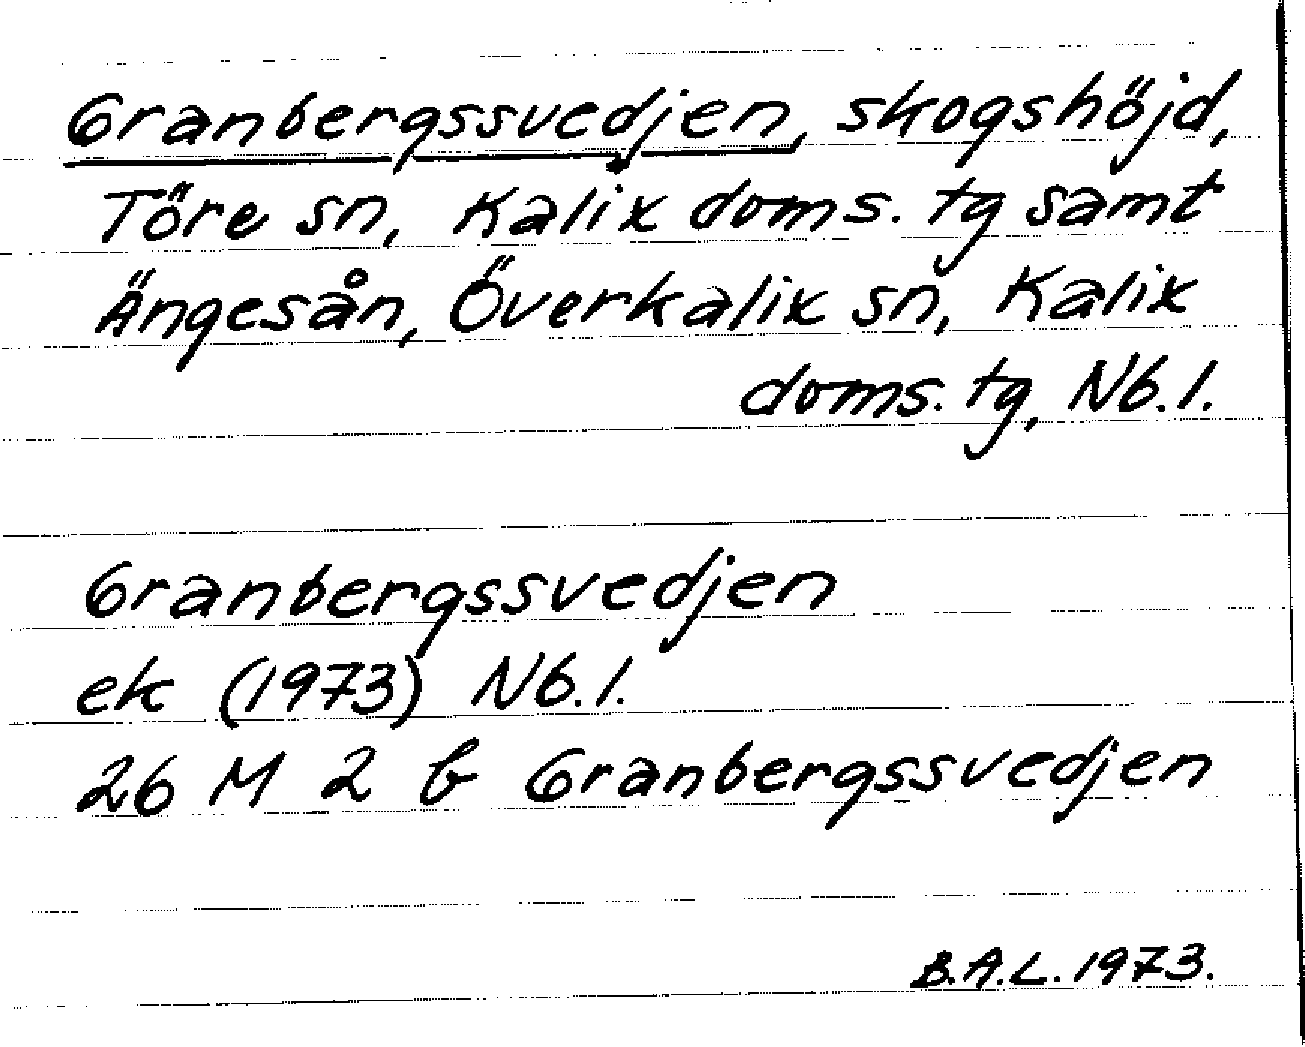 Granbergssvedjen, skogshöjd,
Töre sn, Kalix doms. tg samt
Ängesån, Överkalix sn, Kalix
doms. tg, Nb. l.
Granbergssvedjen
ek (1973) Nb. l.
26 M 2 b Granbergssvedjen
B.A.L. 1973.